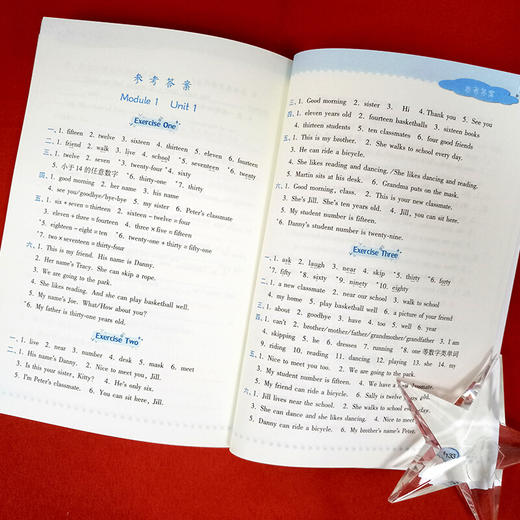 参考答案
Module 1 Unit 1
Exercise One
一、1. fifteen 2. twelve 3. sixteen 4. thirteen 5. eleven 6. fourteen
二、1. friend 2. walk 3. live 4. school *5. seventeen *6. twenty
三、1. twelve 2. seven *3. twenty-four *4. sixty
5. 小于14的任意数字 *6. thirty-one *7. thirty
四、1. good morning 2. her name 3. his name
4. see you/goodbye/bye-bye 5. my sister *6. Peter's classmate
五、1. six+seven=thirteen 2. sixteen-twelve=four
3. eleven+three=fourteen *4. three×five=fifteen
*5. eighteen-eight=ten *6. twenty-one+thirty=fifty-one
*7. two×seventeen=thirty-four
六、1. This is my friend. His name is Danny.
2. Her name's Tracy. She can skip a rope.
3. We are going to the park.
4. She likes reading. And she can play basketball well.
5. My name's Joe. What/How about you?
*6. My father is thirty-one years old.
Exercise Two
一、1. live 2. near 3. number 4. desk 5. mask 6. meet
二、1. His name's Danny. 2. Nice to meet you, Jill.
3. Is this your sister, Kitty? 4. He's only six.
5. I'm Peter's classmate. 6. You can sit here, Jill.
参考答案
三、1. Good morning 2. sister 3. Hi 4. Thank you 5. See you
四、1. eleven years old 2. fourteen basketballs 3. sixteen books
4. thirteen students 5. ten classmates 6. four good friends
五、1. This is my brother. 2. She walks to school every day.
3. He can ride a bicycle.
4. She likes reading and dancing./She likes dancing and reading.
5. Martin sits at his desk. 6. Grandma puts on the mask.
六、1. Good morning, class. 2. This is your new classmate.
3. She's Jill. She's ten years old. 4. Jill, you can sit here.
5. My student number is fifteen.
*6. Danny's student number is twenty-nine.
Exercise Three
一、1. ask 2. laugh 3. near 4. skip *5. thirty *6. forty
*7. fifty *8. sixty *9. ninety *10. eighty
二、1. a new classmate 2. near our school 3. walk to school
4. my home 5. play basketball well 6. a picture of your family
三、1. about 2. goodbye 3. have 4. too 5. well 6. year
四、1. can't 2. brother/mother/father/grandmother/grandfather 3. I am
4. skipping 5. he 6. dresses 7. running *8. one等数字类单词
9. riding 10. reading 11. dancing 12. playing 13. she 14. my
五、1. Nice to meet you too. 2. We are going to the park.
3. My student number is fifteen. 4. We have a classmate.
5. My friend can ride a bicycle. 6. Sally is twelve years old.
六、1. Jill lives near the school. 2. She walks to school every day.
3. She can dance and she likes dancing. 4. Nice to meet
5. Danny can ride a bicycle. 6. My brother's name's Peter.